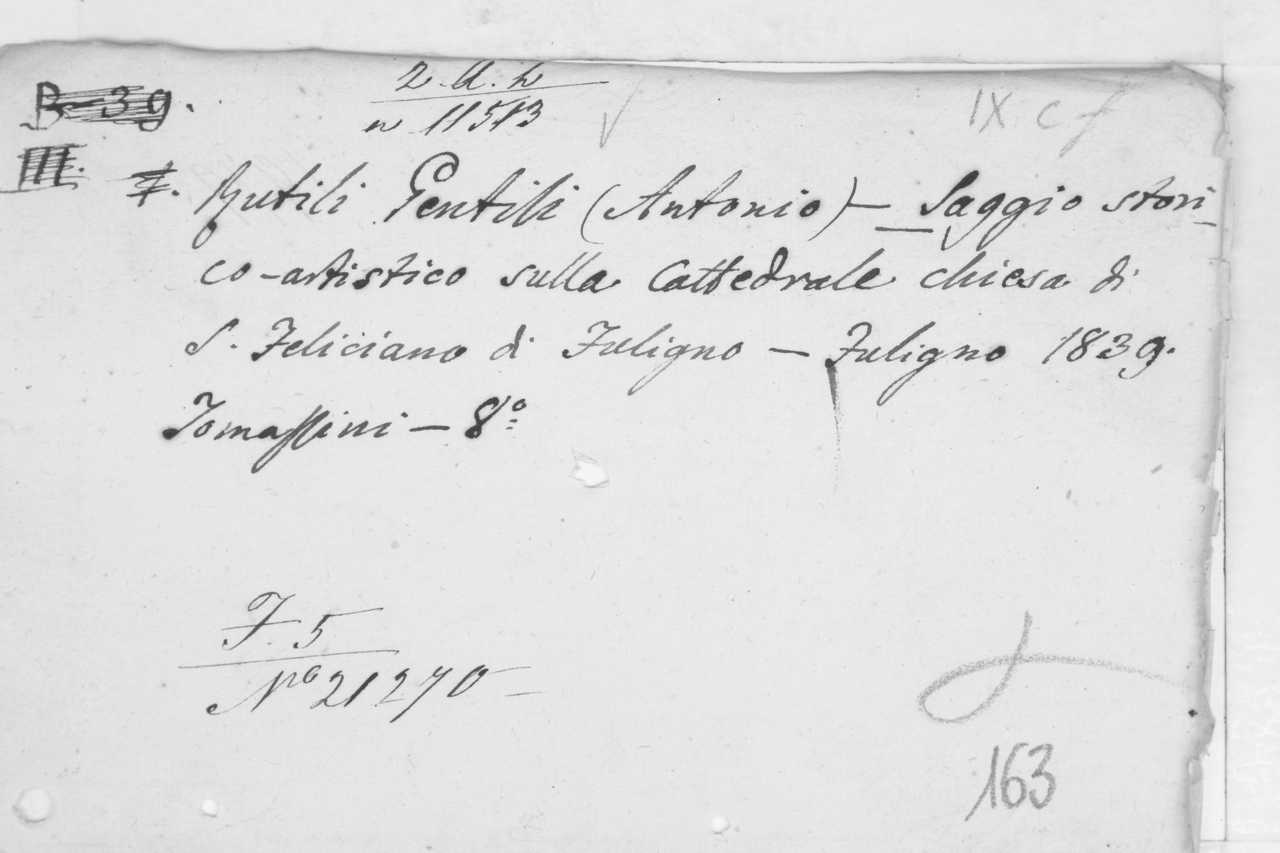 B-39.
2. U. h
n 11513
IX c f
III.
7. Rutili Gentili (Antonio) — Saggio stori-
co-artistico sulla Cattedrale chiesa di
S. Feliciano di Fuligno — Fuligno 1839.
Tomassini — 8º
F. 5
Nº 21270
163